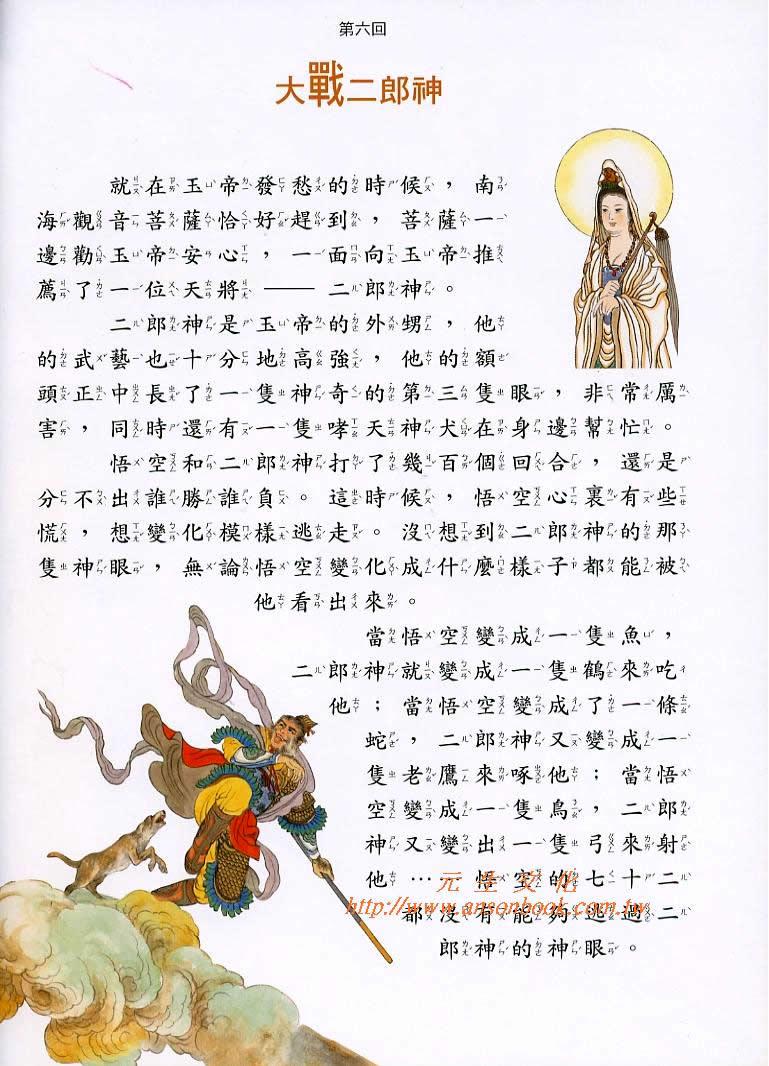 第六回
大戰二郎神
就在玉帝發愁的時候，南
海觀音菩薩恰好趕到，菩薩一
邊勸玉帝安心，一面向玉帝推
薦了一位天將——二郎神。
二郎神是玉帝的外甥，他
的武藝也十分地高強，他的額
頭正中長了一隻神奇的第三隻眼，非常厲
害，同時還有一隻哮天神犬在身邊幫忙。
悟空和二郎神打了幾百個回合，還是
分不出誰勝誰負。這時候，悟空心裏有些
慌，想變化模樣逃走。沒想到二郎神的那
隻神眼，無論悟空變化成什麼樣子都能被
他看出來。
當悟空變成一隻魚，
二郎神就變成一隻鶴來吃
他；當悟空變成了一條
蛇，二郎神又變成一
隻老鷹來啄他；當悟
空變成一隻鳥，二郎
神又變出一隻弓來射
他……悟空的七十二
都沒有能夠逃過二
郎神的神眼。
元生文化
http://www.ansonbook.com.tw